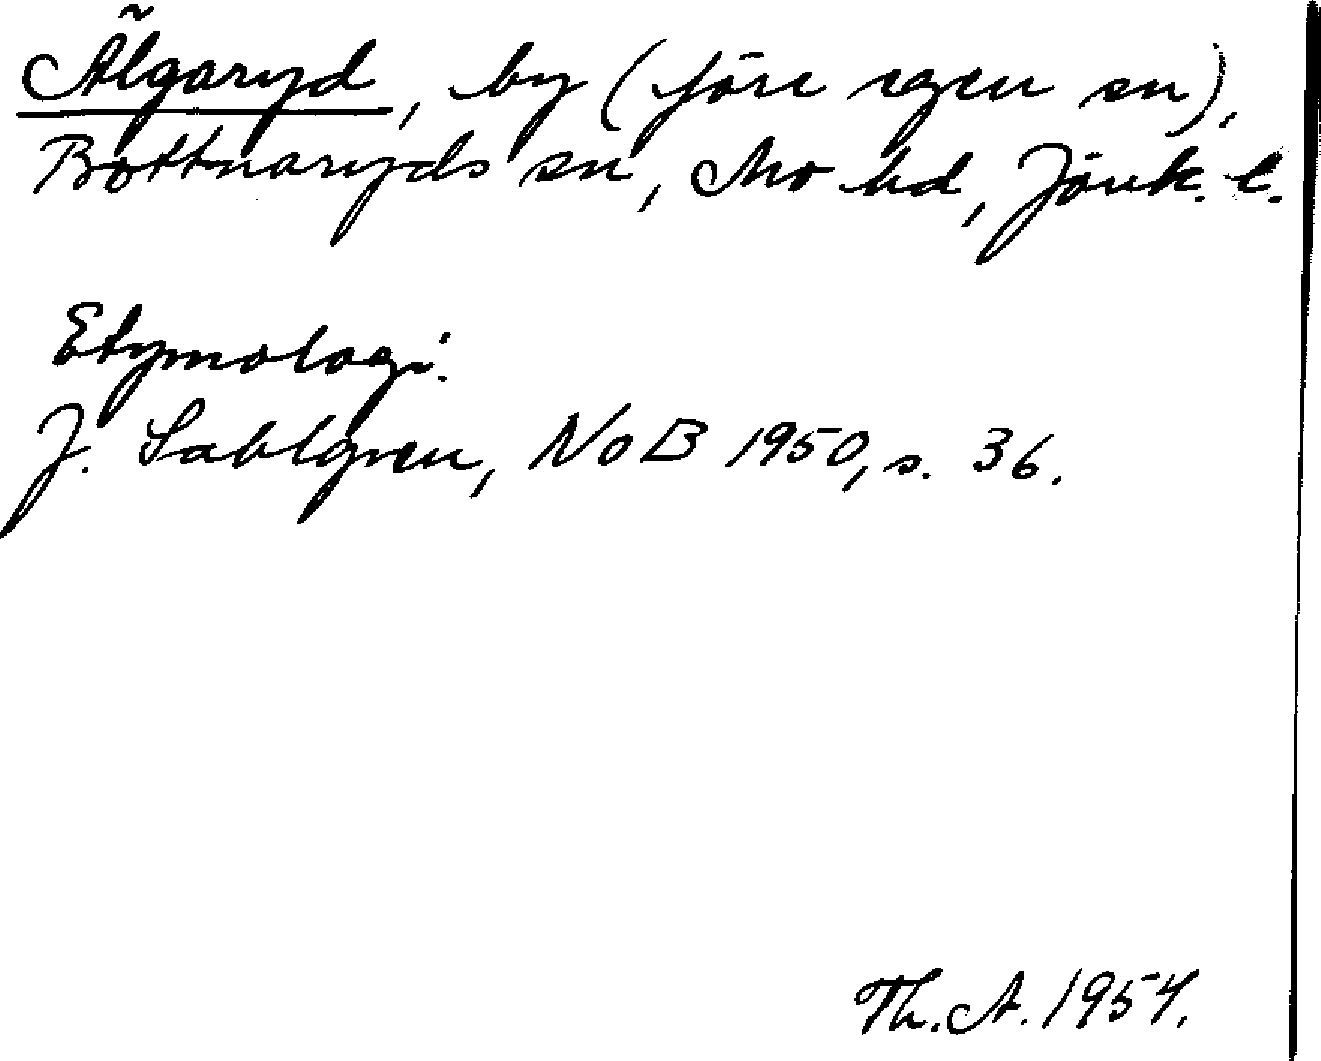 Älgaryd, by (före egen sn),
Bottnaryds sn, Mo hd, Jönk. l.
Etymologi.
J. Sahlgren, NoB 1950, s. 36.
Th. A. 1954.